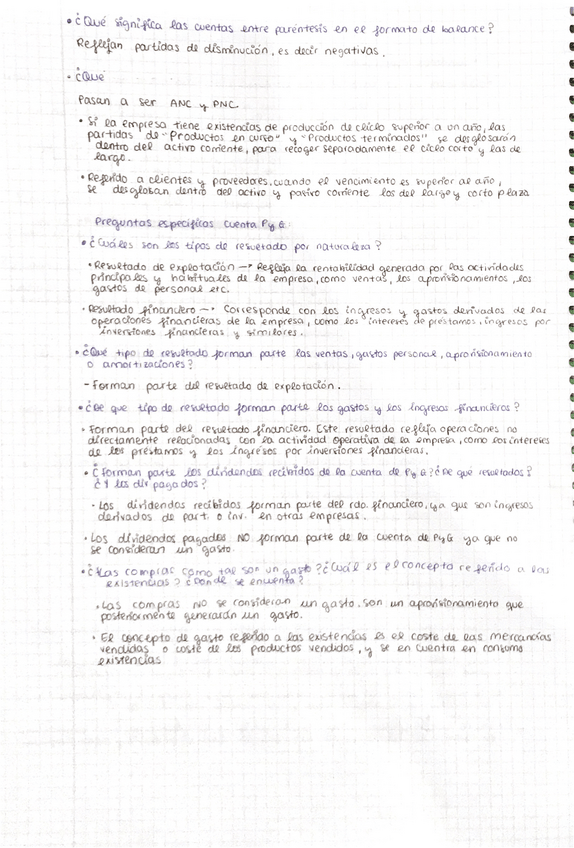 • ¿Qué significa las cuentas entre paréntesis en el formato de balance?
Reflejan partidas de disminución, es decir negativas.
- ¿Qué
Pasan a ser ANC y PNC
• Si la empresa tiene existencias de producción de ciclo superior a un año, las
partidas de "Productos en curso" y "Productos terminados" se desglosarán
dentro del activo corriente, para recoger separadamente el ciclo corto y las de
largo.
• Referido a clientes y proveedores, cuando el vencimiento es superior al año,
se desglosan dentro del activo y pasivo corriente los del largo y corto plazo
Preguntas específicas cuenta PyG:
• ¿Cuáles son los tipos de resultado por naturaleza?
• Resultado de explotación → Refleja la rentabilidad generada por las actividades
principales y habituales de la empresa, como ventas, los aprovisionamientos, los
gastos de personal etc.
• Resultado financiero → Corresponde con los ingresos y gastos derivados de las
operaciones financieras de la empresa, como los intereses de préstamos, ingresos por
inversiones financieras y similares.
• ¿Qué tipo de resultado forman parte las ventas, gastos personal, aprovisionamiento
o amortizaciones?
- Forman parte del resultado de explotación.
• ¿De que tipo de resultado forman parte los gastos y los ingresos financieros?
• Forman parte del resultado financiero. Este resultado refleja operaciones no
directamente relacionadas con la actividad operativa de la empresa, como los intereses
de los préstamos y los ingresos por inversiones financieras.
• ¿Forman parte los dividendos recibidos de la cuenta de PyG? ¿De que resultados?
¿Y los div pagados?
• Los dividendos recibidos forman parte del rdo. financiero, ya que son ingresos
derivados de part. o inv. en otras empresas.
• Los dividendos pagados NO forman parte de la cuenta de PyG ya que no
se consideran un gasto.
• ¿Las compras como tal son un gasto? ¿Cuál es el concepto referido a las
existencias? ¿Donde se encuentra?
• Las compras NO se consideran un gasto. son un aprovisionamiento que
posteriormente generarán un gasto.
• El concepto de gasto referido a las existencias es el coste de las mercancías
vendidas o coste de los productos vendidos, y se encuentra en consumo
existencias